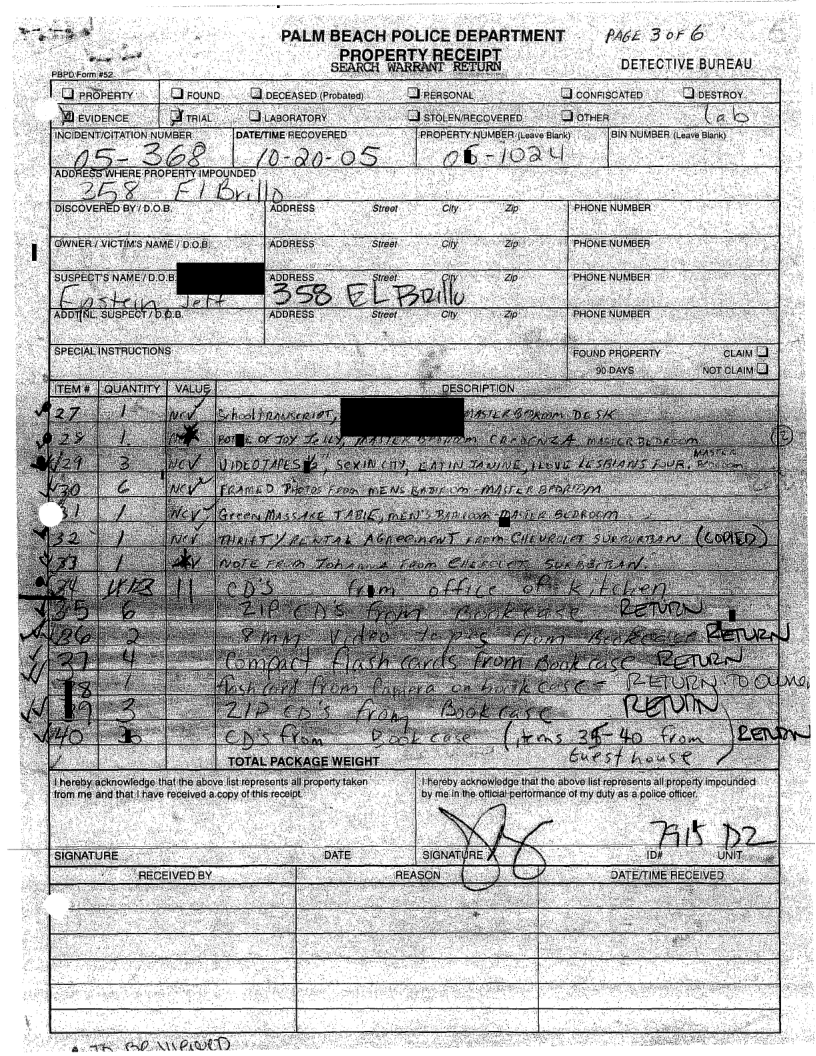 PALM BEACH POLICE DEPARTMENT PAGE 3 OF 6
PROPERTY RECEIPT
SEARCH WARRANT RETURN
DETECTIVE BUREAU
PBPD Form #52
PROPERTY FOUND DECEASED (Probated) PERSONAL CONFISCATED DESTROY
EVIDENCE TRIAL LABORATORY STOLEN/RECOVERED OTHER Lab
INCIDENT/CITATION NUMBER DATE/TIME RECOVERED PROPERTY NUMBER (Leave Blank) BIN NUMBER (Leave Blank)
05-368 10-20-05 05-1024
ADDRESS WHERE PROPERTY IMPOUNDED
358 El Brillo
DISCOVERED BY / D.O.B. ADDRESS Street City Zip PHONE NUMBER
OWNER / VICTIM'S NAME / D.O.B. ADDRESS Street City Zip PHONE NUMBER
SUSPECT'S NAME / D.O.B. ADDRESS Street City Zip PHONE NUMBER
Epstein Jeff 358 EL Brillo
ADDT'NL. SUSPECT / D.O.B. ADDRESS Street City Zip PHONE NUMBER
SPECIAL INSTRUCTIONS FOUND PROPERTY CLAIM
90 DAYS NOT CLAIM
ITEM # QUANTITY VALUE DESCRIPTION
27 1 NCV School TRANSCRIPT, MASTER BEDROOM DESK
28 1 BOTTLE OF JOY JELLY, MASTER BEDROOM CREDENZA MASTER BEDROOM
29 3 NCV VIDEOTAPES, SEX IN CITY, EATIN JANINE, I LOVE LESBIANS FOUR, MASTER Bedroom
30 6 NCV FRAMED PHOTOS FROM MENS BATHROOM - MASTER BEDROOM
31 1 NCV Green MASSAGE TABLE, MEN'S BATHROOM - MASTER BEDROOM
32 1 NCV THRIFTY RENTAL AGREEMENT FROM CHEVROLET SUBURBAN (COPIED)
33 1 NOTE FROM JOHANNA FROM CHEVROLET SUBURBAN.
34 11 CD's from office of kitchen
35 6 ZIP CD's from Bookcase RETURN
36 2 8mm Video tapes from Bookcase RETURN
37 4 Compact flash cards from Bookcase RETURN
38 1 flashcard from Camera on bookcase - RETURN TO OWNER
39 3 ZIP CD's from Bookcase RETURN
40 CD's from bookcase (items 35-40 from Guest house) RETURN
TOTAL PACKAGE WEIGHT
I hereby acknowledge that the above list represents all property taken
from me and that I have received a copy of this receipt.
I hereby acknowledge that the above list represents all property impounded
by me in the official performance of my duty as a police officer.
7915 D2
SIGNATURE DATE SIGNATURE ID# UNIT
RECEIVED BY REASON DATE/TIME RECEIVED